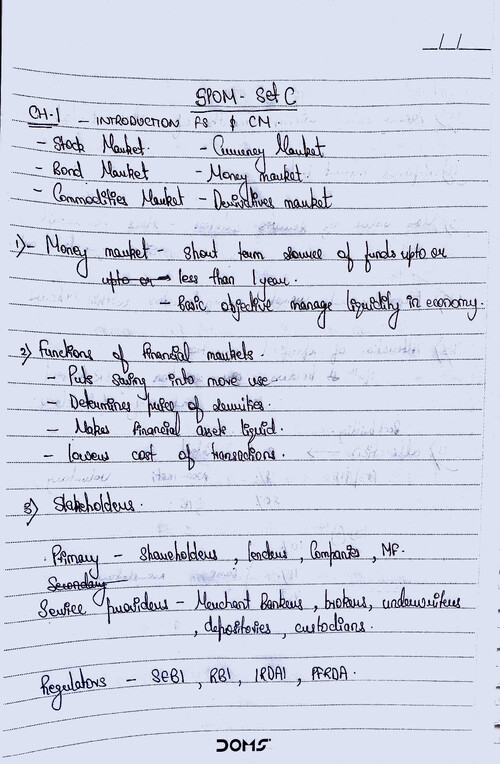 __/__/__
SPOM - Set C
CH-1 - INTRODUCTION FS & CM.
- Stock Market. - Currency Market
- Bond Market - Money market
- Commodities Market - Derivatives market
1) - Money market - Short term source of funds upto or
upto or → less than 1 year.
- basic objective manage liquidity in economy.
2) Functions of financial markets.
- Puts saving into move use
- Determines price of securities.
- Makes financial assets liquid.
- lowers cost of transactions.
3) Stakeholders.
. Primary - Shareholders, lenders, Companies, MF.
Secondary
Service providers - Merchant Bankers, brokers, underwriters
, depositories, custodians.
Regulators - SEBI, RBI, IRDAI, PFRDA.
DOMS